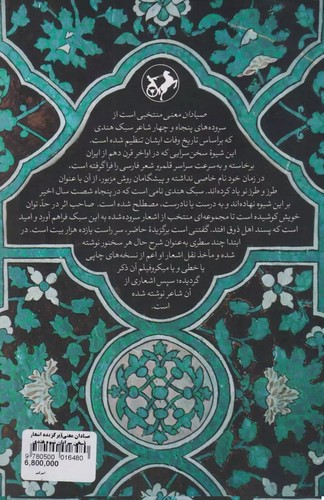 صیادان معنی منتخبی است از
سروده‌های پنجاه و چهار شاعر سبک هندی
که براساس تاریخ وفات ایشان تنظیم شده است.
این شیوهٔ سخن‌سرایی که در اواخر قرن دهم از ایران
برخاسته و به‌سرعت سراسر قلمرو شعر فارسی را فراگرفته است،
در زمان خود نام خاصی نداشته و پیشگامان روش مزبور، از آن با عنوان
طرز و طرز نو یاد کرده‌اند. سبک هندی نامی است که در پنجاه شصت سال اخیر
بر این شیوه نهاده‌اند و به درست یا نادرست، مصطلح شده است. صاحب اثر در حدّ توان
خویش کوشیده است تا مجموعه‌ای منتخب از اشعار سروده‌شده به این سبک فراهم آورد و امید
است که پسند اهل ذوق افتد. گفتنی است برگزیدهٔ حاضر، سر راست یازده هزار بیت است.
ابتدا چند سطری به‌عنوان شرح حال هر سخنور نوشته
شده و مأخذ نقل اشعار او اعم از نسخه‌های چاپی
یا خطی و یا میکروفیلم آن ذکر
گردیده؛ سپس اشعاری از
آن شاعر نوشته شده
است.
صیادان معنی(برگزیده اشعار
9 780500 016480
6,800,000
امیرکبیر